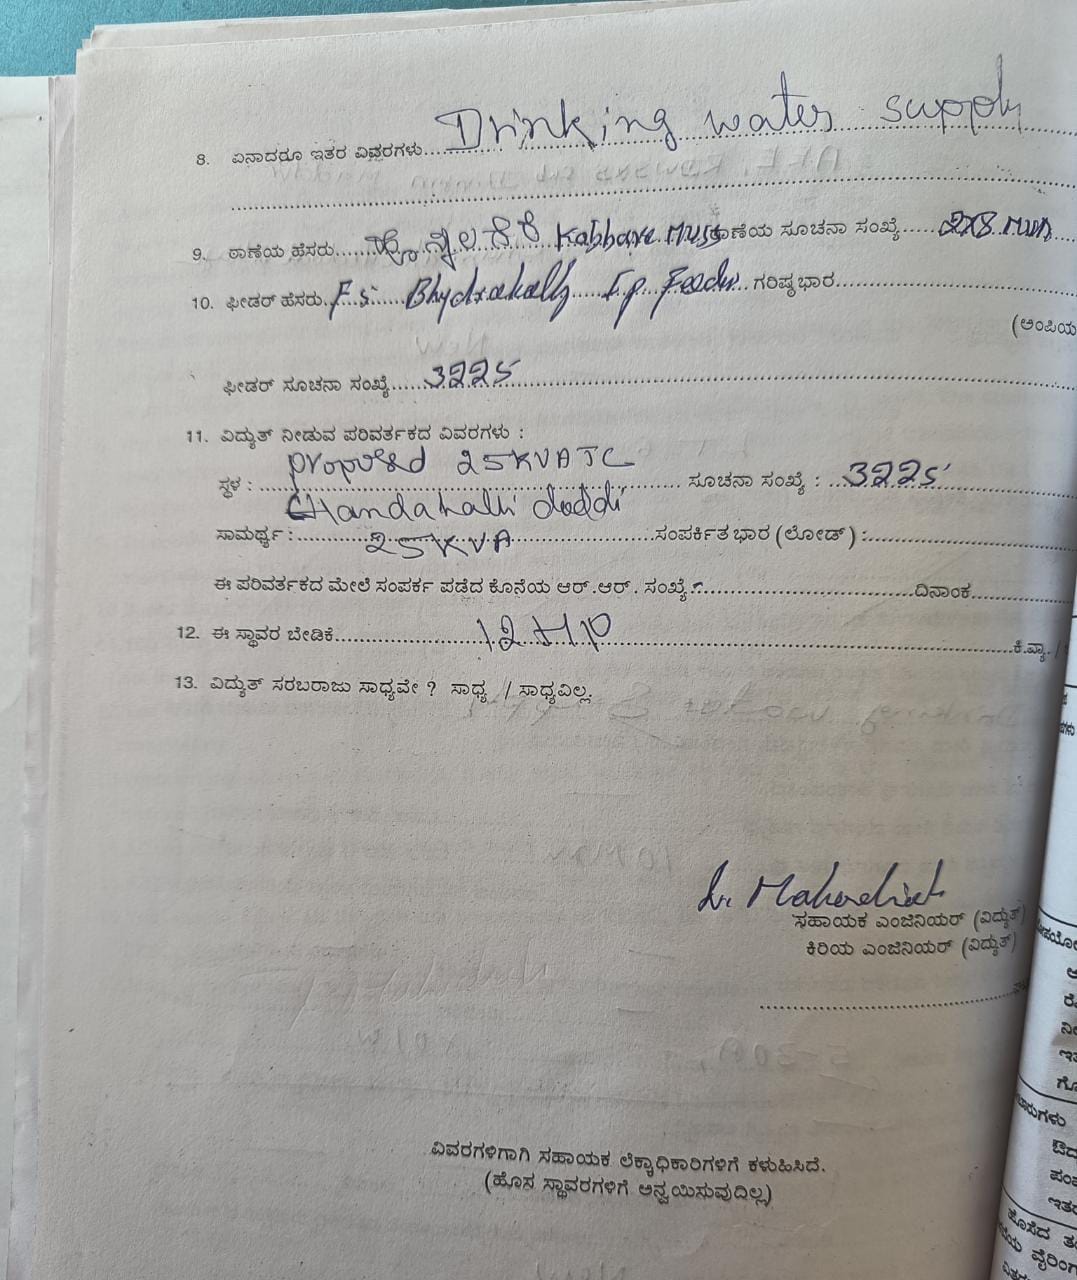 8. ಏನಾದರೂ ಇತರ ವಿವರಗಳು Drinking water supply
9. ಠಾಣೆಯ ಹೆಸರು Kabbare ಠಾಣೆಯ ಸೂಚನಾ ಸಂಖ್ಯೆ 2x8
10. ಫೀಡರ್ ಹೆಸರು F5 I.p. Feeder ಗರಿಷ್ಠ ಭಾರ
(ಅಂಪಿಯ
ಫೀಡರ್ ಸೂಚನಾ ಸಂಖ್ಯೆ 3225
11. ವಿದ್ಯುತ್ ನೀಡುವ ಪರಿವರ್ತಕದ ವಿವರಗಳು :
ಸ್ಥಳ : proposed 25KVA TC ಸೂಚನಾ ಸಂಖ್ಯೆ : 3225
Chandahalli doddi
ಸಾಮರ್ಥ್ಯ : 25KVA ಸಂಪರ್ಕಿತ ಭಾರ (ಲೋಡ್) :
ಈ ಪರಿವರ್ತಕದ ಮೇಲೆ ಸಂಪರ್ಕ ಪಡೆದ ಕೊನೆಯ ಆರ್.ಆರ್. ಸಂಖ್ಯೆ ದಿನಾಂಕ
12. ಈ ಸ್ಥಾವರ ಬೇಡಿಕೆ 12 HP ಕಿ.ವ್ಯಾ. /
13. ವಿದ್ಯುತ್ ಸರಬರಾಜು ಸಾಧ್ಯವೇ ? ಸಾಧ್ಯ / ಸಾಧ್ಯವಿಲ್ಲ.
ಸಹಾಯಕ ಎಂಜಿನಿಯರ್ (ವಿದ್ಯುತ್)
ಕಿರಿಯ ಎಂಜಿನಿಯರ್ (ವಿದ್ಯುತ್)
ವಿವರಗಳಿಗಾಗಿ ಸಹಾಯಕ ಲೆಕ್ಕಾಧಿಕಾರಿಗಳಿಗೆ ಕಳುಹಿಸಿದೆ.
(ಹೊಸ ಸ್ಥಾವರಗಳಿಗೆ ಅನ್ವಯಿಸುವುದಿಲ್ಲ)